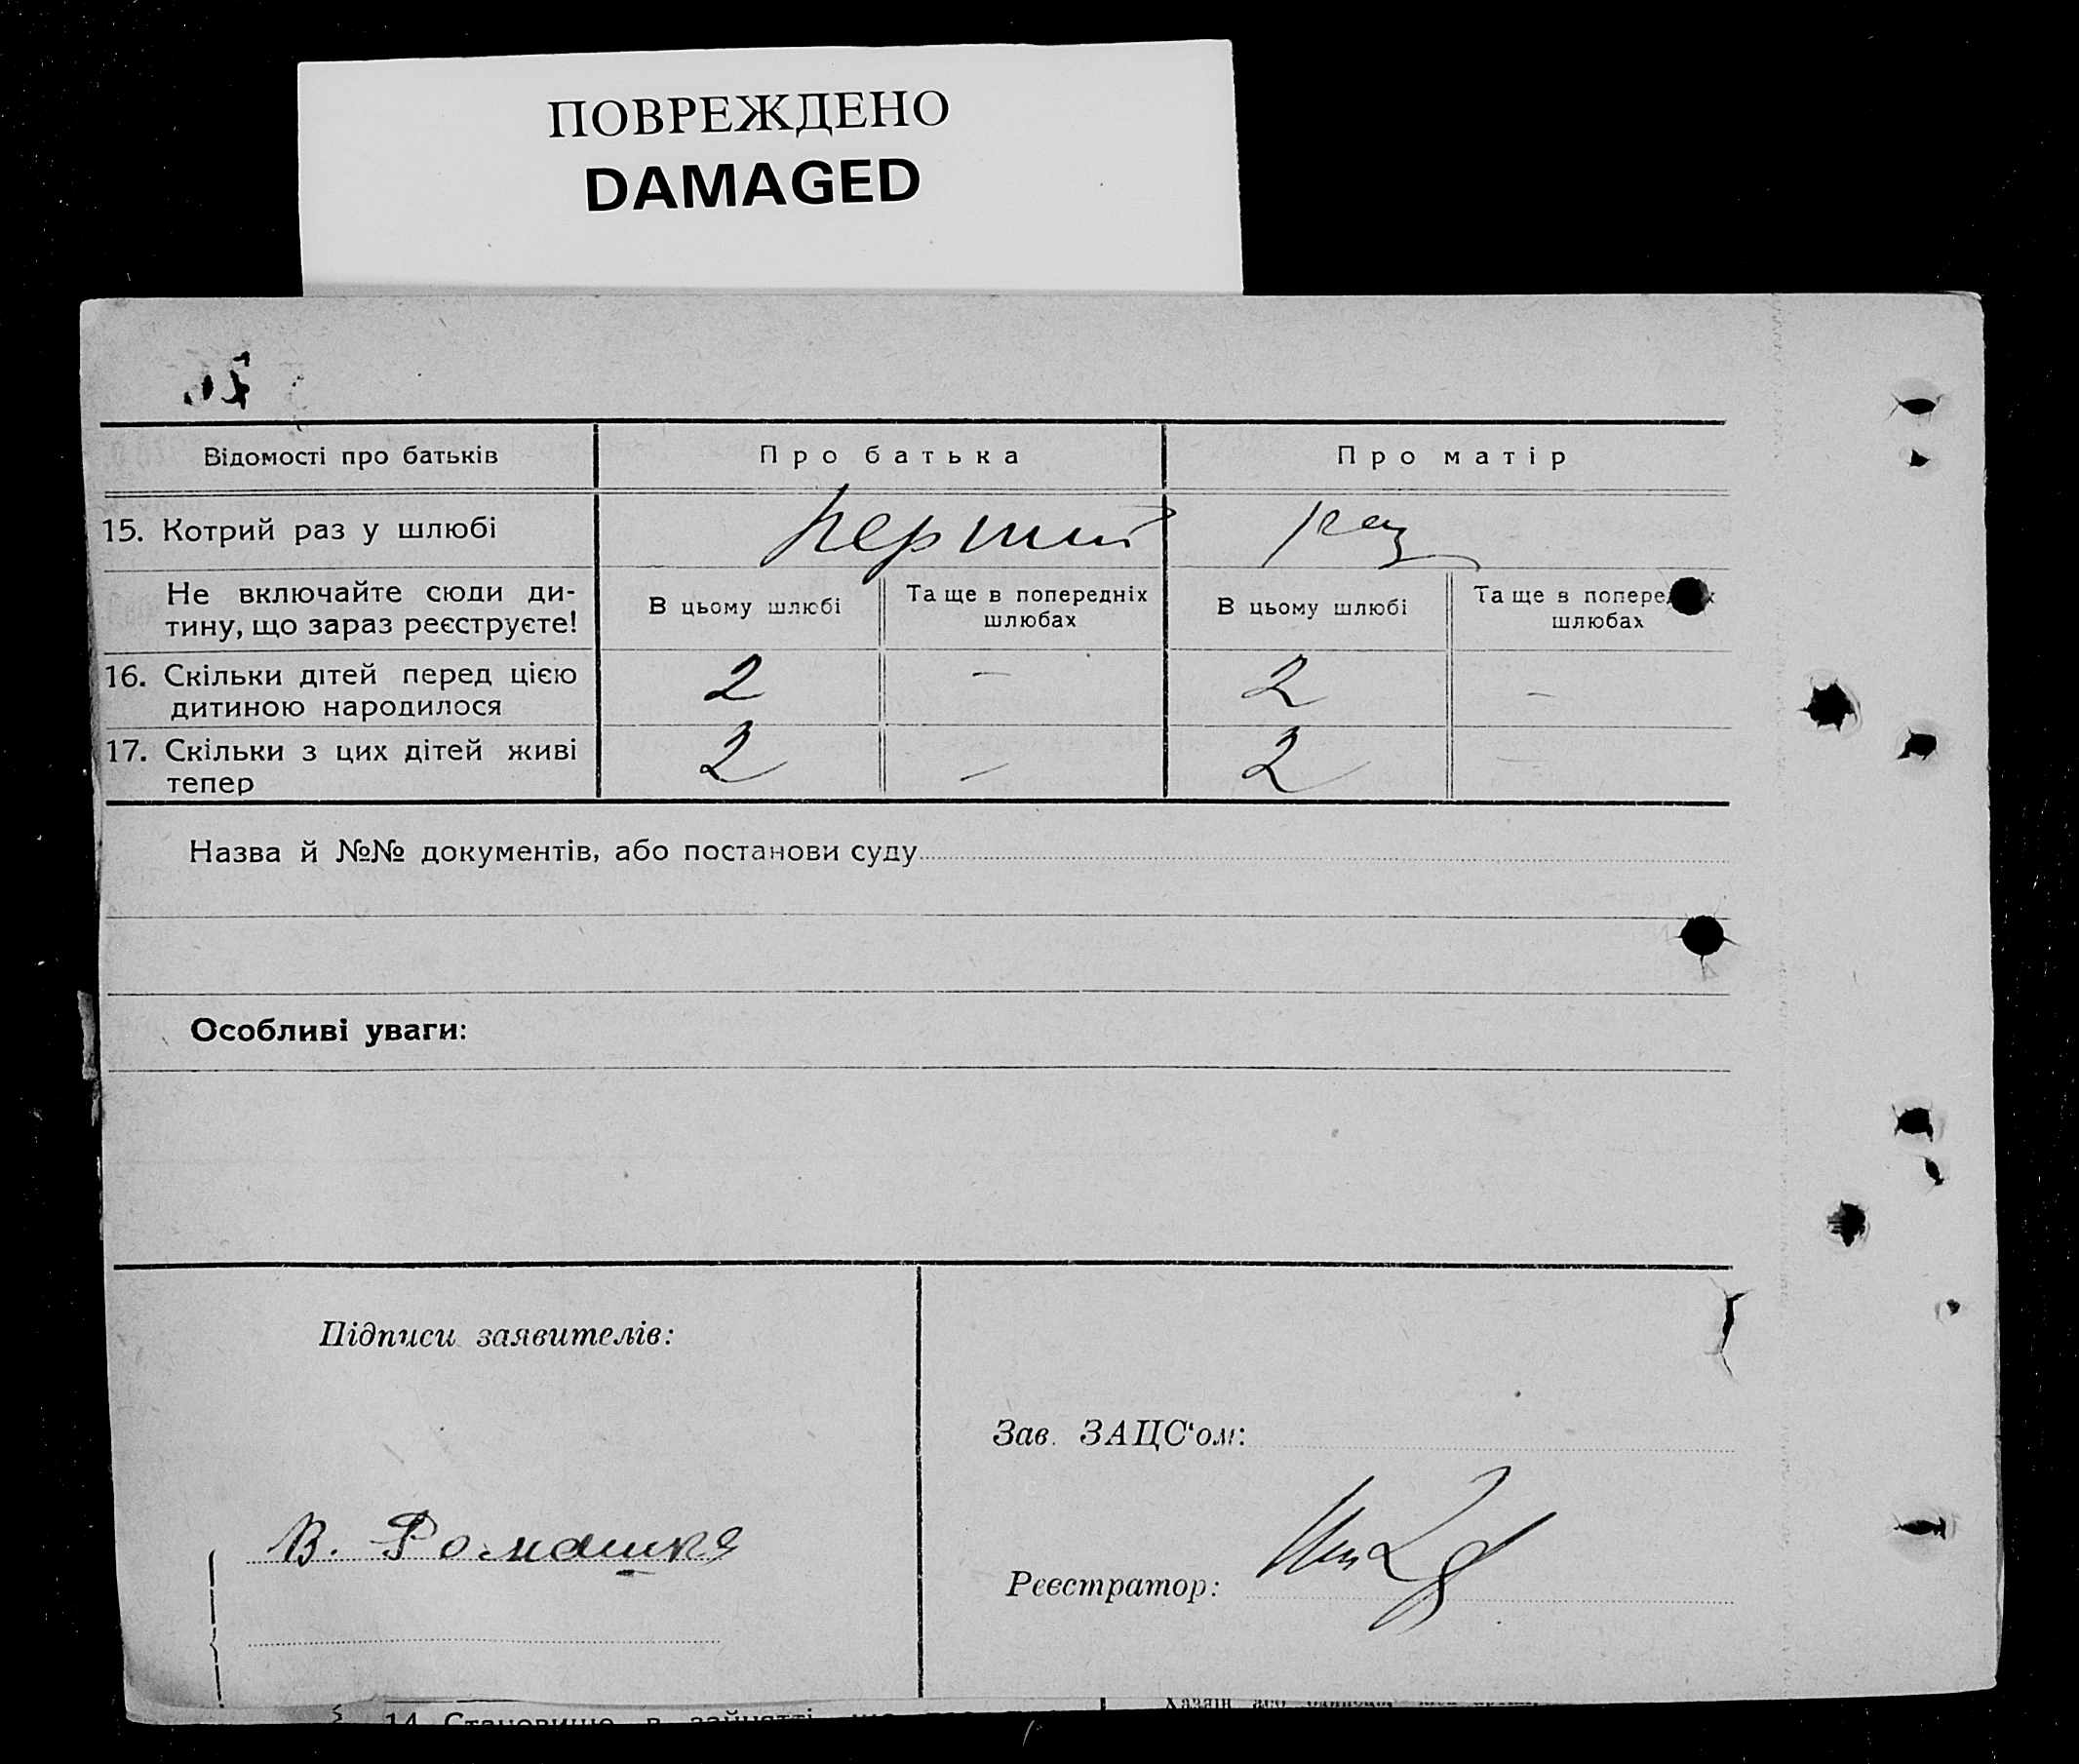 ПОВРЕЖДЕНО
DAMAGED
Відомості про батьків
Про батька
Про матір
15. Котрий раз у шлюбі
перший раз
Не включайте сюди ди-
тину, що зараз реєструєте!
В цьому шлюбі
Та ще в попередніх
шлюбах
В цьому шлюбі
Та ще в
шлюбах
16. Скільки дітей перед цією
дитиною народилося
2
—
2
—
17. Скільки з цих дітей живі
тепер
2
—
2
—
Назва й №№ документів, або постанови суду
Особливі уваги:
Підписи заявителів:
Зав. ЗАЦС‘ом:
В. Ромашка
Реєстратор:
14 Становище в зайнятті